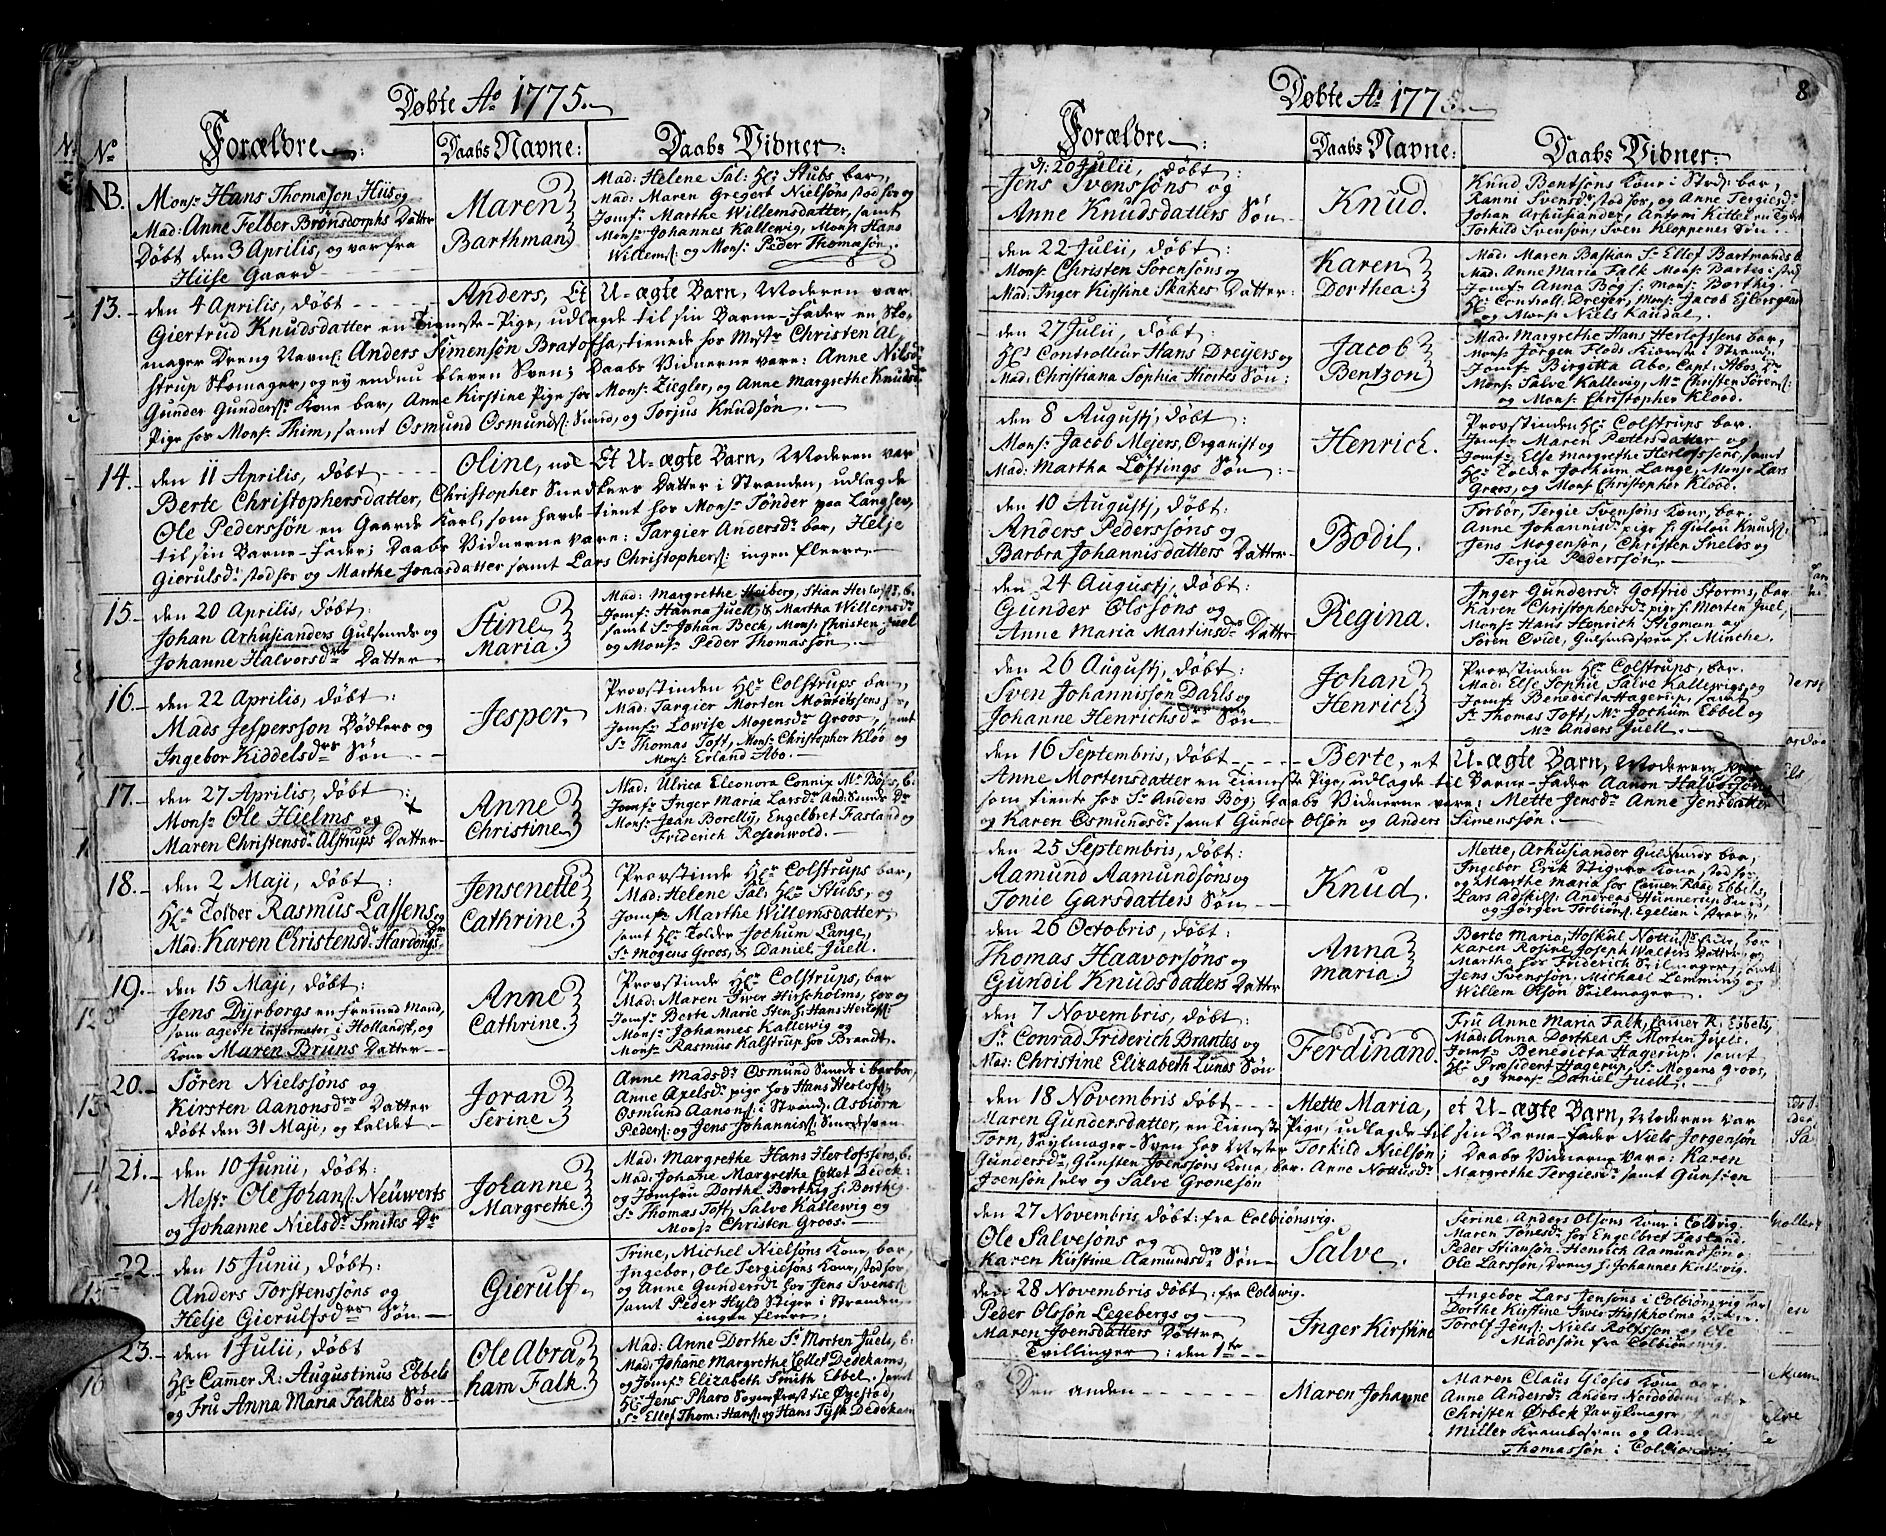 Døbte Ao 1775.
No
Forældre:
Daabs Navne:
Daabs Vidner:
NB.
Monsr Hans Thomæson Hiis og
Mad: Anne Felber Brønsdorphs Datter
Døbt den 3 Aprilis, og var fra
Hiise Gaard
Maren
Barthman
Mad: Helene Sal: Hr Stubs bar,
Mad: Maren Gregors Nielsøns stod for og
Jomfr Marthe Willemsdatter, samt
Monsr Johannes Kallewig, Monsr Hans
Willems: og Monsr Peder Thomasøn.
13.
den 4 Aprilis, døbt - Anders, Et U-ægte Barn, Moderen var
Giertrud Knudsdatter en Tieneste-Pige, udlagde til sin Barne-Fader en Sko-
mager Dreng Navnl. Anders Simensøn tienede for Mestr Christen Al-
strup Skomager, og ey endnu bleven Sven; Daabs Vidnerne vare: Anne Nilsdr
Gunder Gunders: Kone bar, Anne Kirstine Pige for Monsr Ziegler, og Anne Margrethe Knudsdr
Pige hos Monsr Thim, samt Osmund Osmunds: Smed, og Torjus Knudsøn.
14.
den 11 Aprilis, døbt - Oline, Et U-ægte Barn, Moderen var
Berte Christophersdatter, Christopher Snedkers Datter i Stranden, udlagde
Ole Pedersøn en Gaards Karl, som havde tient for Monsr Tønder paa Langsev,
til sin Barne-Fader; Daabs Vidnerne vare: Targier Andersdr bar, Helje
Gierulsdr stod for og Marthe Jonasdatter samt Lars Christophers: ingen fleere.
15.
den 20 Aprilis, døbt:
Johan Arhusianders Gulsmeds og
Johanne Halvorsdrs Datter
Stine
Maria.
Mad: Margrethe Heiberg, Stian Herlofs, b.
Jomfr Hanna Juell, & Martha Willemsdr
samt Sr Johan Beck, Monsr Christen Juel
og Monsr Peder Thomassøn.
16.
den 22 Aprilis, døbt:
Mads Jespersson Bødkers og
Ingebor Kiddelsdrs Søn
Jesper.
Provstinden Hr Colstrups bar,
Mad: Targier Morten
Jomfr Lowise Mogensdr Groos, samt
Sr Thomas Toft, Monsr Christopher Kloo og
Monsr Erland Abo.
17.
den 27 Aprilis, døbt:
Monsr Ole Hielms og
Maren Christensdr Alstrups Datter
Anne
Christine
Mad: Ulrica Eleonora Connix Mr Boyes, b.
Jomfr Inger Maria Larsdr And: Smeds Dr
Monsr Jean Borelly, Engelbret Fasland og
Friderich Rosenwold.
18.
den 2 Maji, døbt:
Hr Tolder Rasmus Lassens og
Mad: Karen Christensdr Hardongs Dr
Jensenette
Cathrine.
Provstinde Hr Colstrups bar,
Mad: Helene Sal: Hr Stubs, og
Jomfr Marthe Willemsdatter,
samt Hr Tolder Jochum Lange,
Sr Mogens Groos, & Daniel Juell.
19.
den 15 Maji, døbt:
Jens Dijrborgs en fremmed Mand,
som agerte informater i Holland, og
Kone Maren Bruns Datter
Anne
Cathrine.
Provstinde Hr Colstrups, bar
Mad: Maren Iwer Hirscholms, for og
Jomfr Berte Marie Stens, Hans Herlofs:
Monsr Johannes Kallewig og
Monsr Rasmus Kalstrup for Brandt.
20.
Søren Nielssøns og
Kirsten Aanonsdrs Datter
døbt den 31 Maji, og kaldet
Joran
Serine.
Anne Madsdr Osmund Smeds i barbor,
Anne Axelsdr pige hos Hans Herlofs:
Osmund Aanons: i Strand: Asbiørn
Peders: og Jens Johanniss: Smedsven
21.
den 10 Junii, døbt:
Mestr Ole Johans: Neüwerts
og Johanne Nielsdr Smites Dr
Johanne
Margrethe.
Mad: Margrethe Hans Herlofssens, b:
Mad: Johane Margrethe Collet Dedek:
og Jomfru Dorthe Borthig f: Borthig
Sr Thomas Toft, Salve Kallewig og
Monsr Christen Groos.
22.
den 15 Junii, døbt:
Anders Torstenssøns og
Helje Gierulfsdrs Søn
Gierulf.
Trine, Michel Nielsøns Kone, bar,
Ingebor, Ole Tergiesøns Kone, stod for
og Anne Gundersdr hos Jens Svens:
samt Peder Hyld Stiger i Stranden
ingen fleere.
23.
den 1 Julii, døbt
Hr Camer R: Augustinus Ebbels
og Fru Anna Maria Falkes Søn
Ole Abra-
ham Falk.
Mad: Anne Dorthe Sr Morten Juels, b:
Mad: Johane Margrethe Collet Dedekams,
og Jomfr Elizabeth Smith Ebbel, samt
Hr Jens Pharo Sogne Præst til Øyestad,
Sr Ellef Thom: Hans: og Hans Tysk Dedekam
Døbte Ao 177
8
Forældre:
Daabs Navne:
Daabs Vidner:
d: 20 Julii, døbt:
Jens Svenssøns og
Anne Knudsdatters Søn
Knud.
Knud Bentsøns Kone i Strd: bar,
Ranni Svensdr stod for, og Anne Tergiesdr
Johan Arhusiander,
Torkild Svensøn, Sven Kloppenes Søn.
den 22 Julii, døbt:
Monsr Christen Sørensøns og
Mad: Inger Kirstine Skakes Datter:
Karen
Dorthea.
Mad: Maren Bastian Sr Ellef Bartmands b.
Mad: Anne Maria Falk Monsr Bartes: stod
Jomfr Anna Bog f: Monsr Borthig.
Hr Controll: Dreyer, Monsr Jacob
og Monsr Niels Kaudal.
den 27 Julii, døbt:
Hr Controlleur Hans Dreyers og
Mad: Christiana Sophia Hiortes Søn:
Jacob
Bentzon
Mad: Margrethe Hans Herlofssens bar,
Monsr Jørgen Flods Kiæreste i Strand:
Jomfr Birgitta Abo, Capt: Abos, Dr
Monsr Salve Kallevig, Mr Christen Sørens:
og Monsr Christopher Klood.
den 8 Augustj, døbt:
Monsr Jacob Mejers, Organist og
Mad: Martha Løftings Søn
Henrich.
Provstinden Hr Colstrups bar.
Jomfr Maren Pettersdatter og
Jomfr Else Margrethe Herlofssens, samt
Hr Tolder Jochum Lange, Monsr Lars
Groos, og Monsr Christopher Klood.
den 10 Augustj, døbt:
Anders Pederssøns og
Barbra Johannisdatters Datter
Bodil.
Torbor, Tergie Svensøns Kone, bar.
Anne Johannisdr pige f: Gulou Knuds:
Jens Mogensøn, Christen Sneløs og
Tergie Pederssøn.
den 24 Augustj, døbt:
Gunder Olssøns og
Anne Maria Martinsdrs Datter
Regina.
Inger Gundersdr Gotfrid Storms, bar
Karen Christophersdr pige f: Morten Juel,
Monsr Hans Henrich Stigman og
Søren Ovide, Gulsmedsven f: Minche.
den 26 Augustj, døbt:
Sven Johannissøn Dahls og
Johanne Henrichsdrs Søn
Johan
Henrich
Provstinden Hr Colstrups, bar.
Mad: Else Sophie Salve Kallewigs, og
Jomfr Benedicta Hagerup, samt
Sr Thomas Toft, Mr Jochum Ebbel og
Mr Anders Juell.
den 16 Septembris, døbt - Berte, et U-ægte Barn, Moderen var
Anne Mortensdatter en Tieneste Pige, udlagde til Barne-Fader Aanon Halvorsøn
som tiente hos Sr Anders Bog; Daabs Vidnerne vare: Mette Jensdr Anne Jensdatter
og Karen Osmundsdr samt Gunder Olsøn og Anders Simenssøn.
den 25 Septembris, døbt:
Aamund Aamundsøns og
Tonie Garsdatters Søn
Knud.
Mette, Arhusiander Guldsmeds bar,
Ingebor Erik Stigers Kone stod for
og Marthe Maria hos Camer Raad Ebbels,
Lars Adskils: Andreas Hunnerup Smed,
og Jørgen Torbiøns: Egelien i
den 26 Octobris, døbt:
Thomas Haavorsøns og
Gundil Knudsdatters Datter
Anna
Maria.
Berte Maria, Hoskul Nottus: Kone, bar
Karen Rosine Joseph Walters Datter, og
Martha hos Friderich Seilmager, samt
Jens Svensøn, Michael Lemming og
Willem Olsøn Seilmager.
den 7 Novembris, døbt:
Sr Conrad Friderich Brantes og
Mad: Christine Elizabeth Lunds Søn
Ferdinand.
Fru Anne Maria Falk, Camer R: Ebbels,
Mad: Anna Dorthea Sr Morten Juels.
Jomfr Benedicta Hagerup, samt
Hr Præsident Hagerup, Sr Mogens Groos,
og Monsr Daniel Juell.
den 18 Novembris døbt - Mette Maria, et U-ægte Barn, Moderen var
Maren Gundersdatter, en Tieneste Pige, udlagde til sin Barne-Fader Niels Jørgensøn
Torn, Seylmager-Sven hos Mester Torkild Nielsøn; Daabs Vidnerne vare: Karen
Gundersdr, Gunsten Joenssøns Kone, bar. Anne Nottusdr Margrethe Tergiesdr samt Gunsten
Joensøn selv og Salve Gronesøn
den 27 Novembris døbt: fra Colbiønsvig.
Ole Salvesøns og
Karen Kirstine Aamundsdrs Søn
Salve.
Serine, Anders Olsøns Kone i Colbvig.
Maren Tønesdr hos Engelbret Fasland.
Peder Stiansøn, Henrich Aamundsøn o
Ole Larssøn, Dreng f: Johannes Kallevig.
den 28 Novembris døbt: fra Colbvig.
Peder Olsøn Legebergs og
Maren Joensdatters Datter
Tvillinger: den 1te
Inger Kirstine
Ingebor Lars Jensøns i Colbiønsvig bar
Dorthe Kirstine Iwer Hirskholms
Torolf Jens: Niels Rolfssøn og Ole
Madssøn fra Colbiønsvig.
Den anden
Maren Johanne
Maren Claus Gloses Kone bar.
Anne Andersdr Anders
Christen Ørbek
Miller Krambosven og
Thomassøn i Colbiønsvig